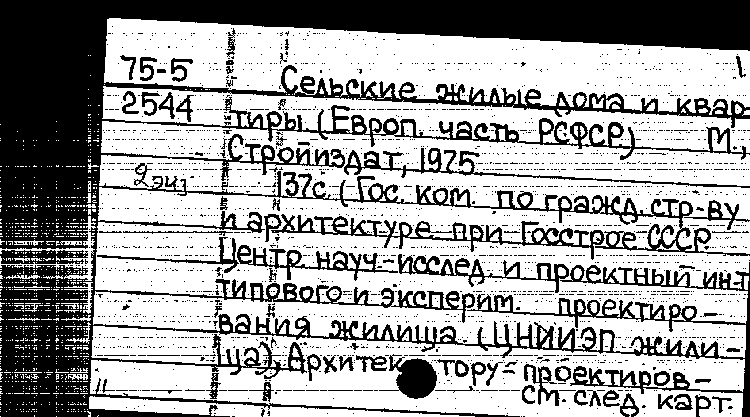 75-5
2544
Сельские жилые дома и квар-
тиры. (Европ. часть РСФСР.) М.,
Стройиздат, 1975.
2 экз
137с. (Гос. ком. по гражд. стр-ву
и архитектуре при Госстрое СССР.
Центр. науч.-исслед. и проектный ин-т
типового и эксперим. проектиро-
вания жилища. (ЦНИИЭП жили-
ща). Архитек тору-проектиров-
см. след. карт.